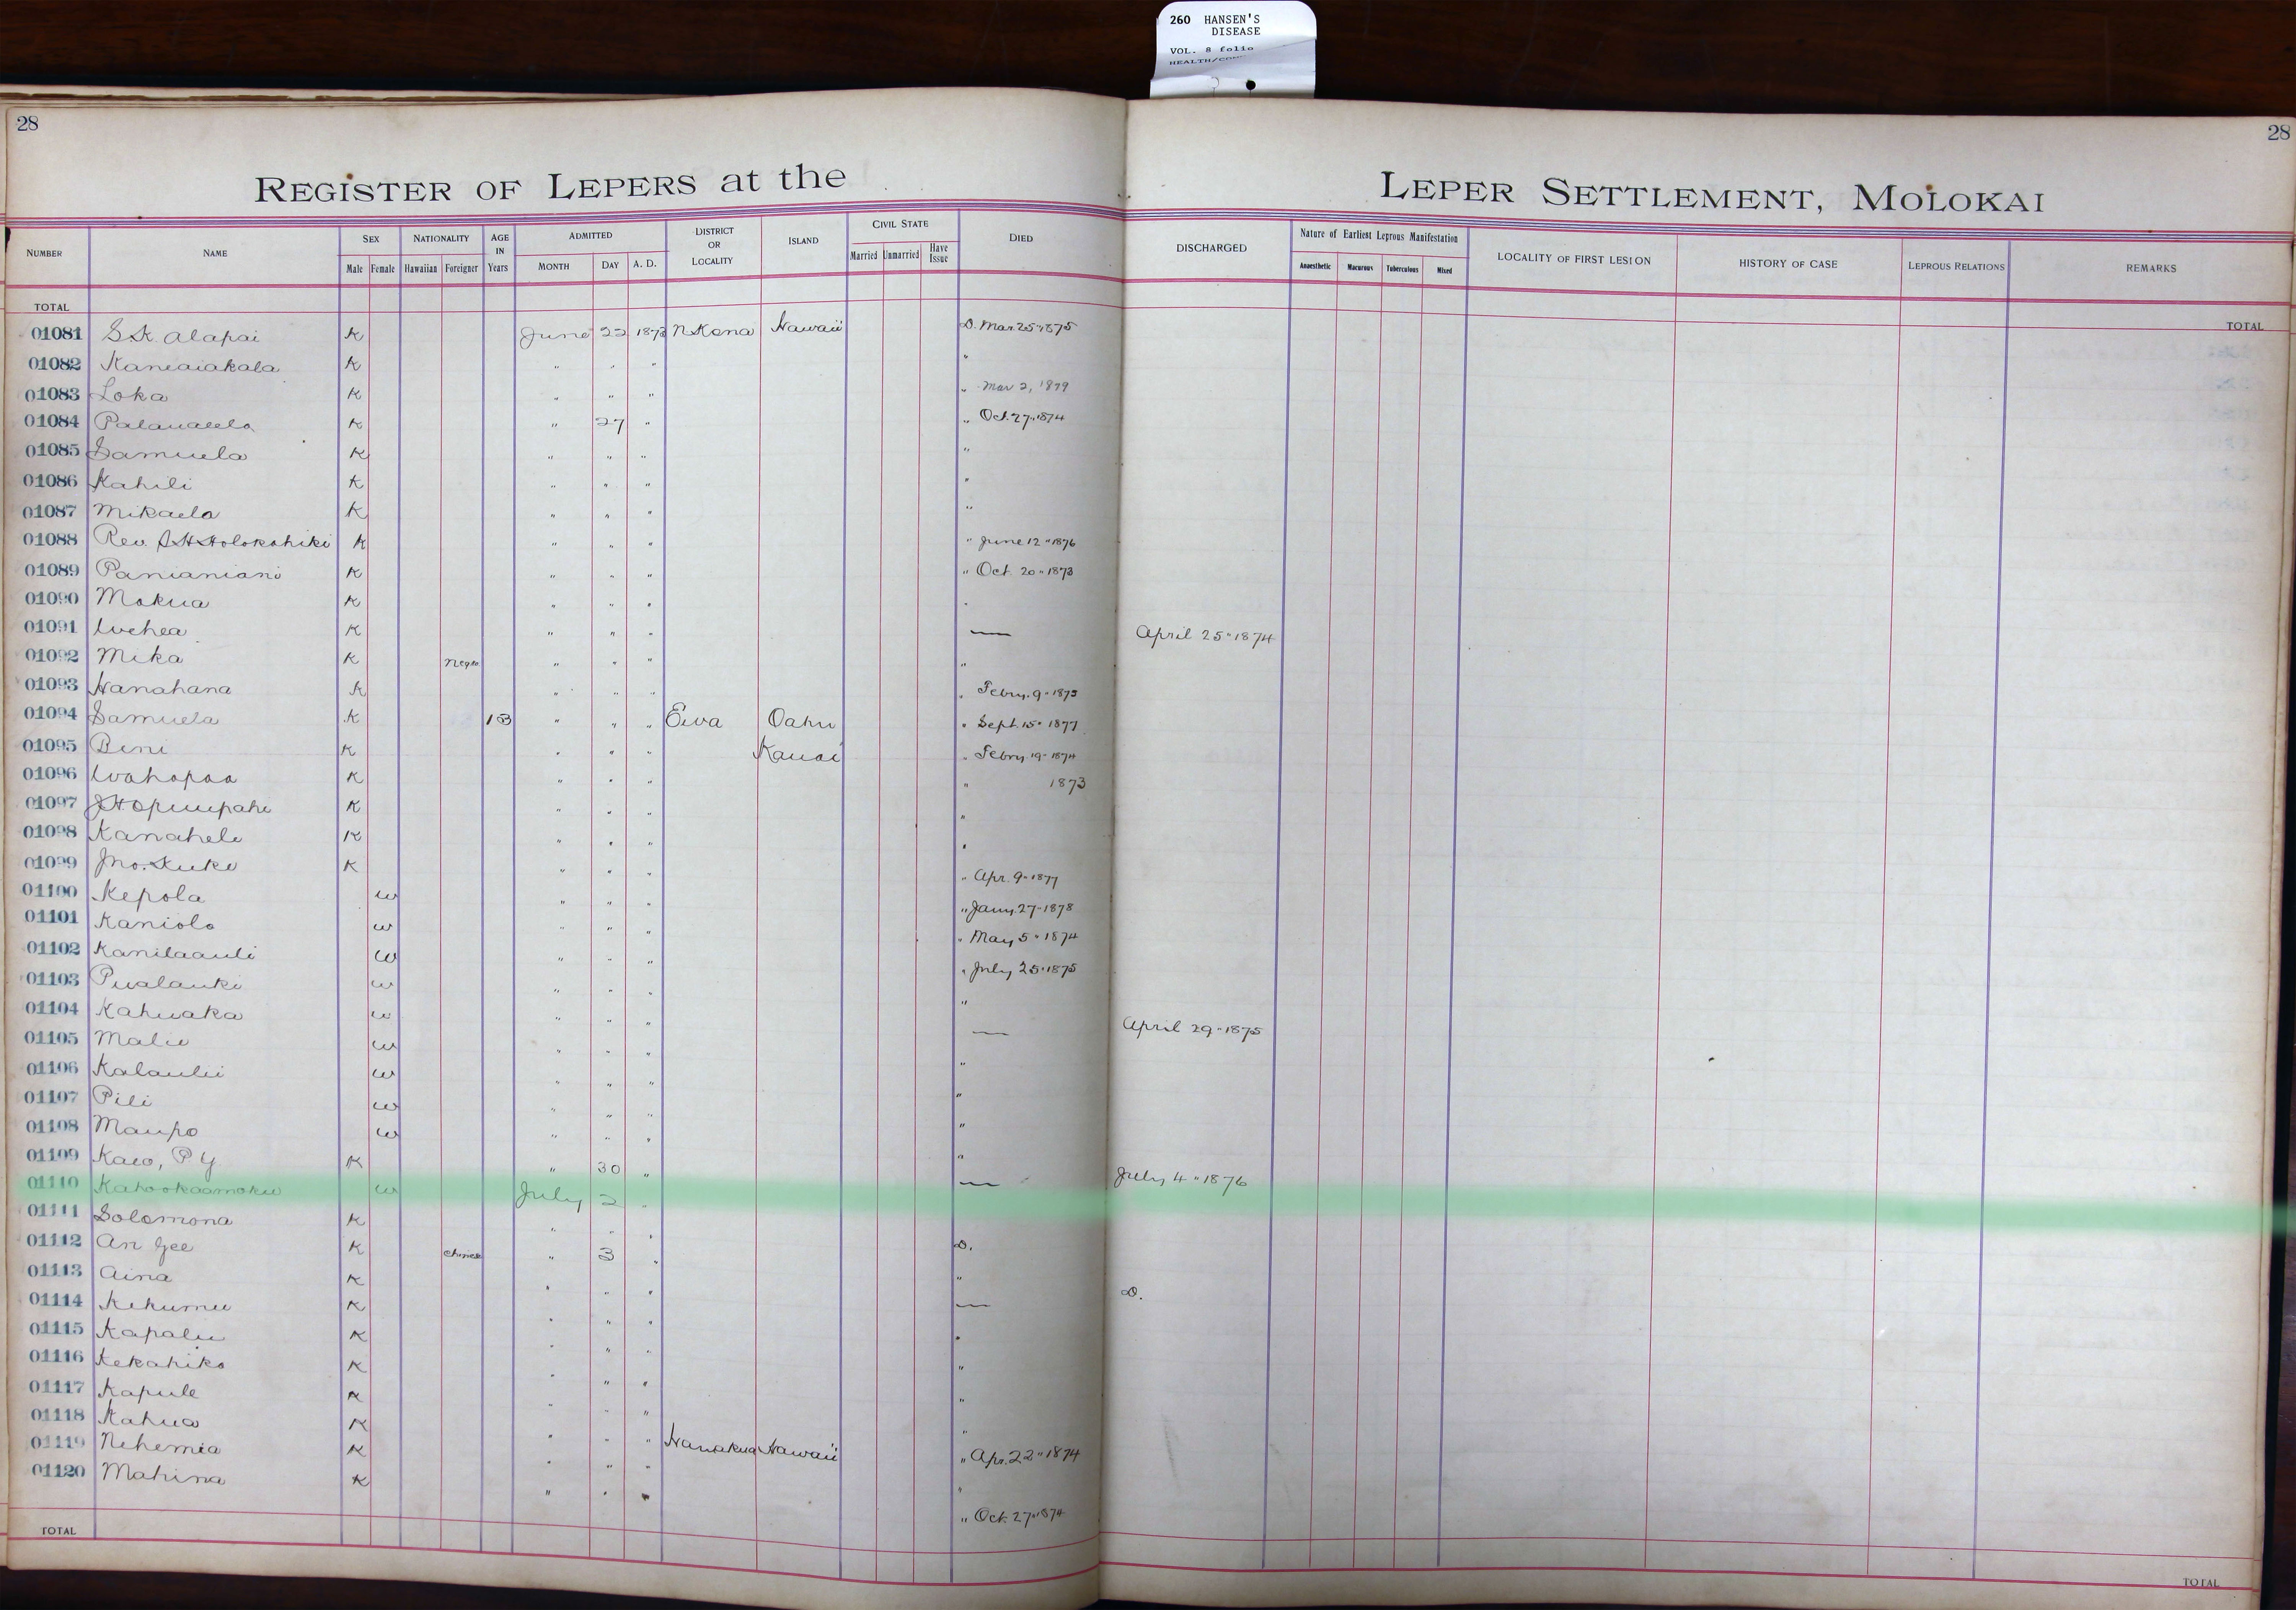 260 HANSEN'S
DISEASE
VOL. 8 folio
28
28
REGISTER OF LEPERS at the LEPER SETTLEMENT, MOLOKAI
NUMBER NAME SEX Male Female NATIONALITY Hawaiian Foreigner AGE IN Years ADMITTED MONTH DAY A. D. DISTRICT OR LOCALITY ISLAND CIVIL STATE Married Unmarried Have Issue DIED DISCHARGED Nature of Earliest Leprous Manifestation Anaesthetic Macurous Tuberculous Mixed LOCALITY OF FIRST LESION HISTORY OF CASE LEPROUS RELATIONS REMARKS
TOTAL TOTAL
01081 S.K. Alapai K June 22 1873 N Kona Hawaii D. Mar. 25 "1875
01082 Kaneaiakala K " " " "
01083 Loka K " " " " Mar 2, 1879
01084 K " 27 " " Oct. 27 "1874
01085 Samuela K " " " "
01086 Kahili K " " " "
01087 Mikaela K " " " "
01088 Rev. Holokahiki K " " " " June 12 "1876
01089 Panianiani K " " " " Oct. 20 "1873
01090 Mokua K " " " "
01091 K " " " — April 25 "1874
01092 Mika K Negro " " " "
01093 Hanahana K " " " " Febry. 9 "
01094 Samuela K 13 " " " Ewa Oahu " Sept. 15 " 1877
01095 Beni K " " " Kauai " Febry 19 " 1874
01096 Wahapaa K " " " " 1873
01097 K " " " "
01098 Kanahele K " " " "
01099 Jno. K " " " " Apr. 9 " 1877
01100 Kepola W " " " " Jany. 27 " 1878
01101 Kaniolo W " " " " May 5 " 1874
01102 Kanilaauli W " " " " July 25 "1875
01103 Pualauki W " " " "
01104 Kahuaka W " " " — April 29 "1875
01105 Malie W " " " "
01106 Kalaulii W " " " "
01107 Pili W " " " "
01108 Maupo W " " " "
01109 Kaeo, P Y K " 30 " — July 4 "1876
01110 Kahookaamoku W July 2 "
01111 Solomona K " " " D.
01112 An Gee K Chinese " 3 " "
01113 Aina K " " " — D.
01114 Kekumu K " " " "
01115 Kapalu K " " " "
01116 Kekahiko K " " " "
01117 Kapule K " " " "
01118 Kahua K " " " "
01119 Nehemia K " " " Hamakua Hawaii " Apr. 22 "1874
01120 Mahina K " " " " Oct. 27 "1874
TOTAL TOTAL